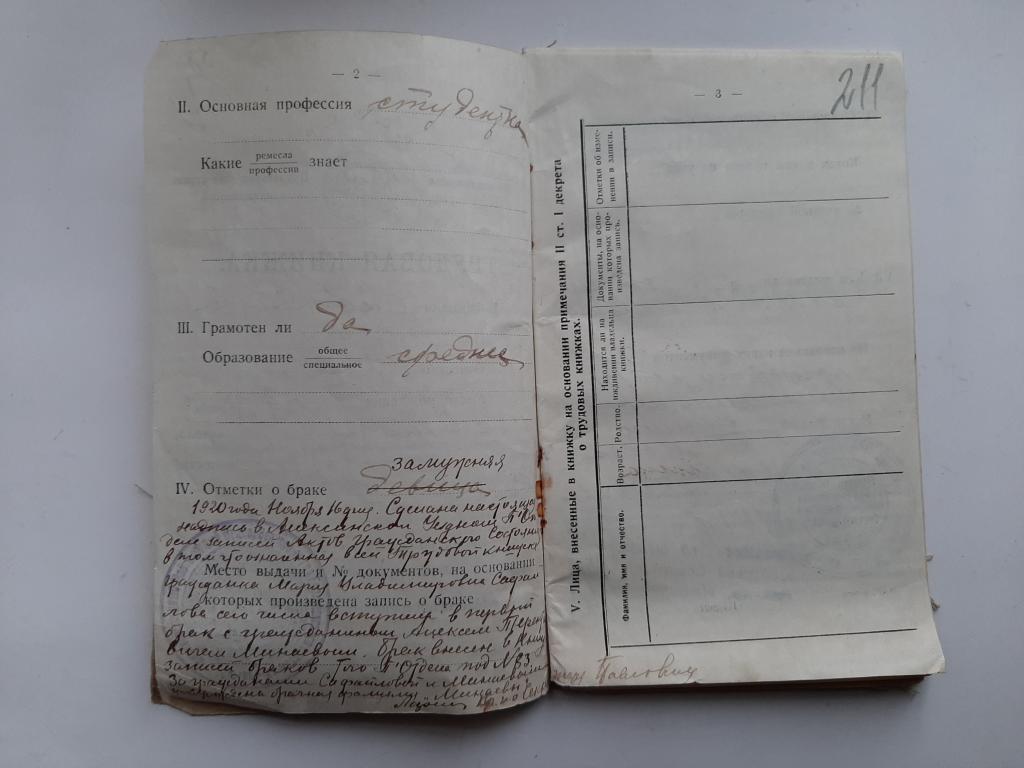 — 2 —
II. Основная профессия студентка
Какие ремесла
профессии знает
III. Грамотен ли да
Образование общее
специальное средне
замужняя
IV. Отметки о браке девица
1920 года Ноября 16 дня. Сделана настоящая
надпись в Уездном
записей Актов Гражданского Состояния
в том что означенная в сей Трудовой книжке
Место выдачи и № документов, на основании
гражданка Мария Владимировна
которых произведена запись о браке
сего числа вступила в первый
брак с гражданином Алексеем
Минаевым. брак внесен в книгу
записи браков Того Отдела под №
За гражданами и Минаевым
брачная фамилия „Минаевы"
— 3 —
211
V. Лица, внесенные в книжку на основании примечания II ст. I декрета
о трудовых книжках.
Фамилия, имя и отчество.
Возраст.
Родство.
Находится ли на
иждивении владельца
книжки.
Документы, на осно-
вании которых про-
изведена запись.
Отметки об изме-
нении в записи.
Павлович